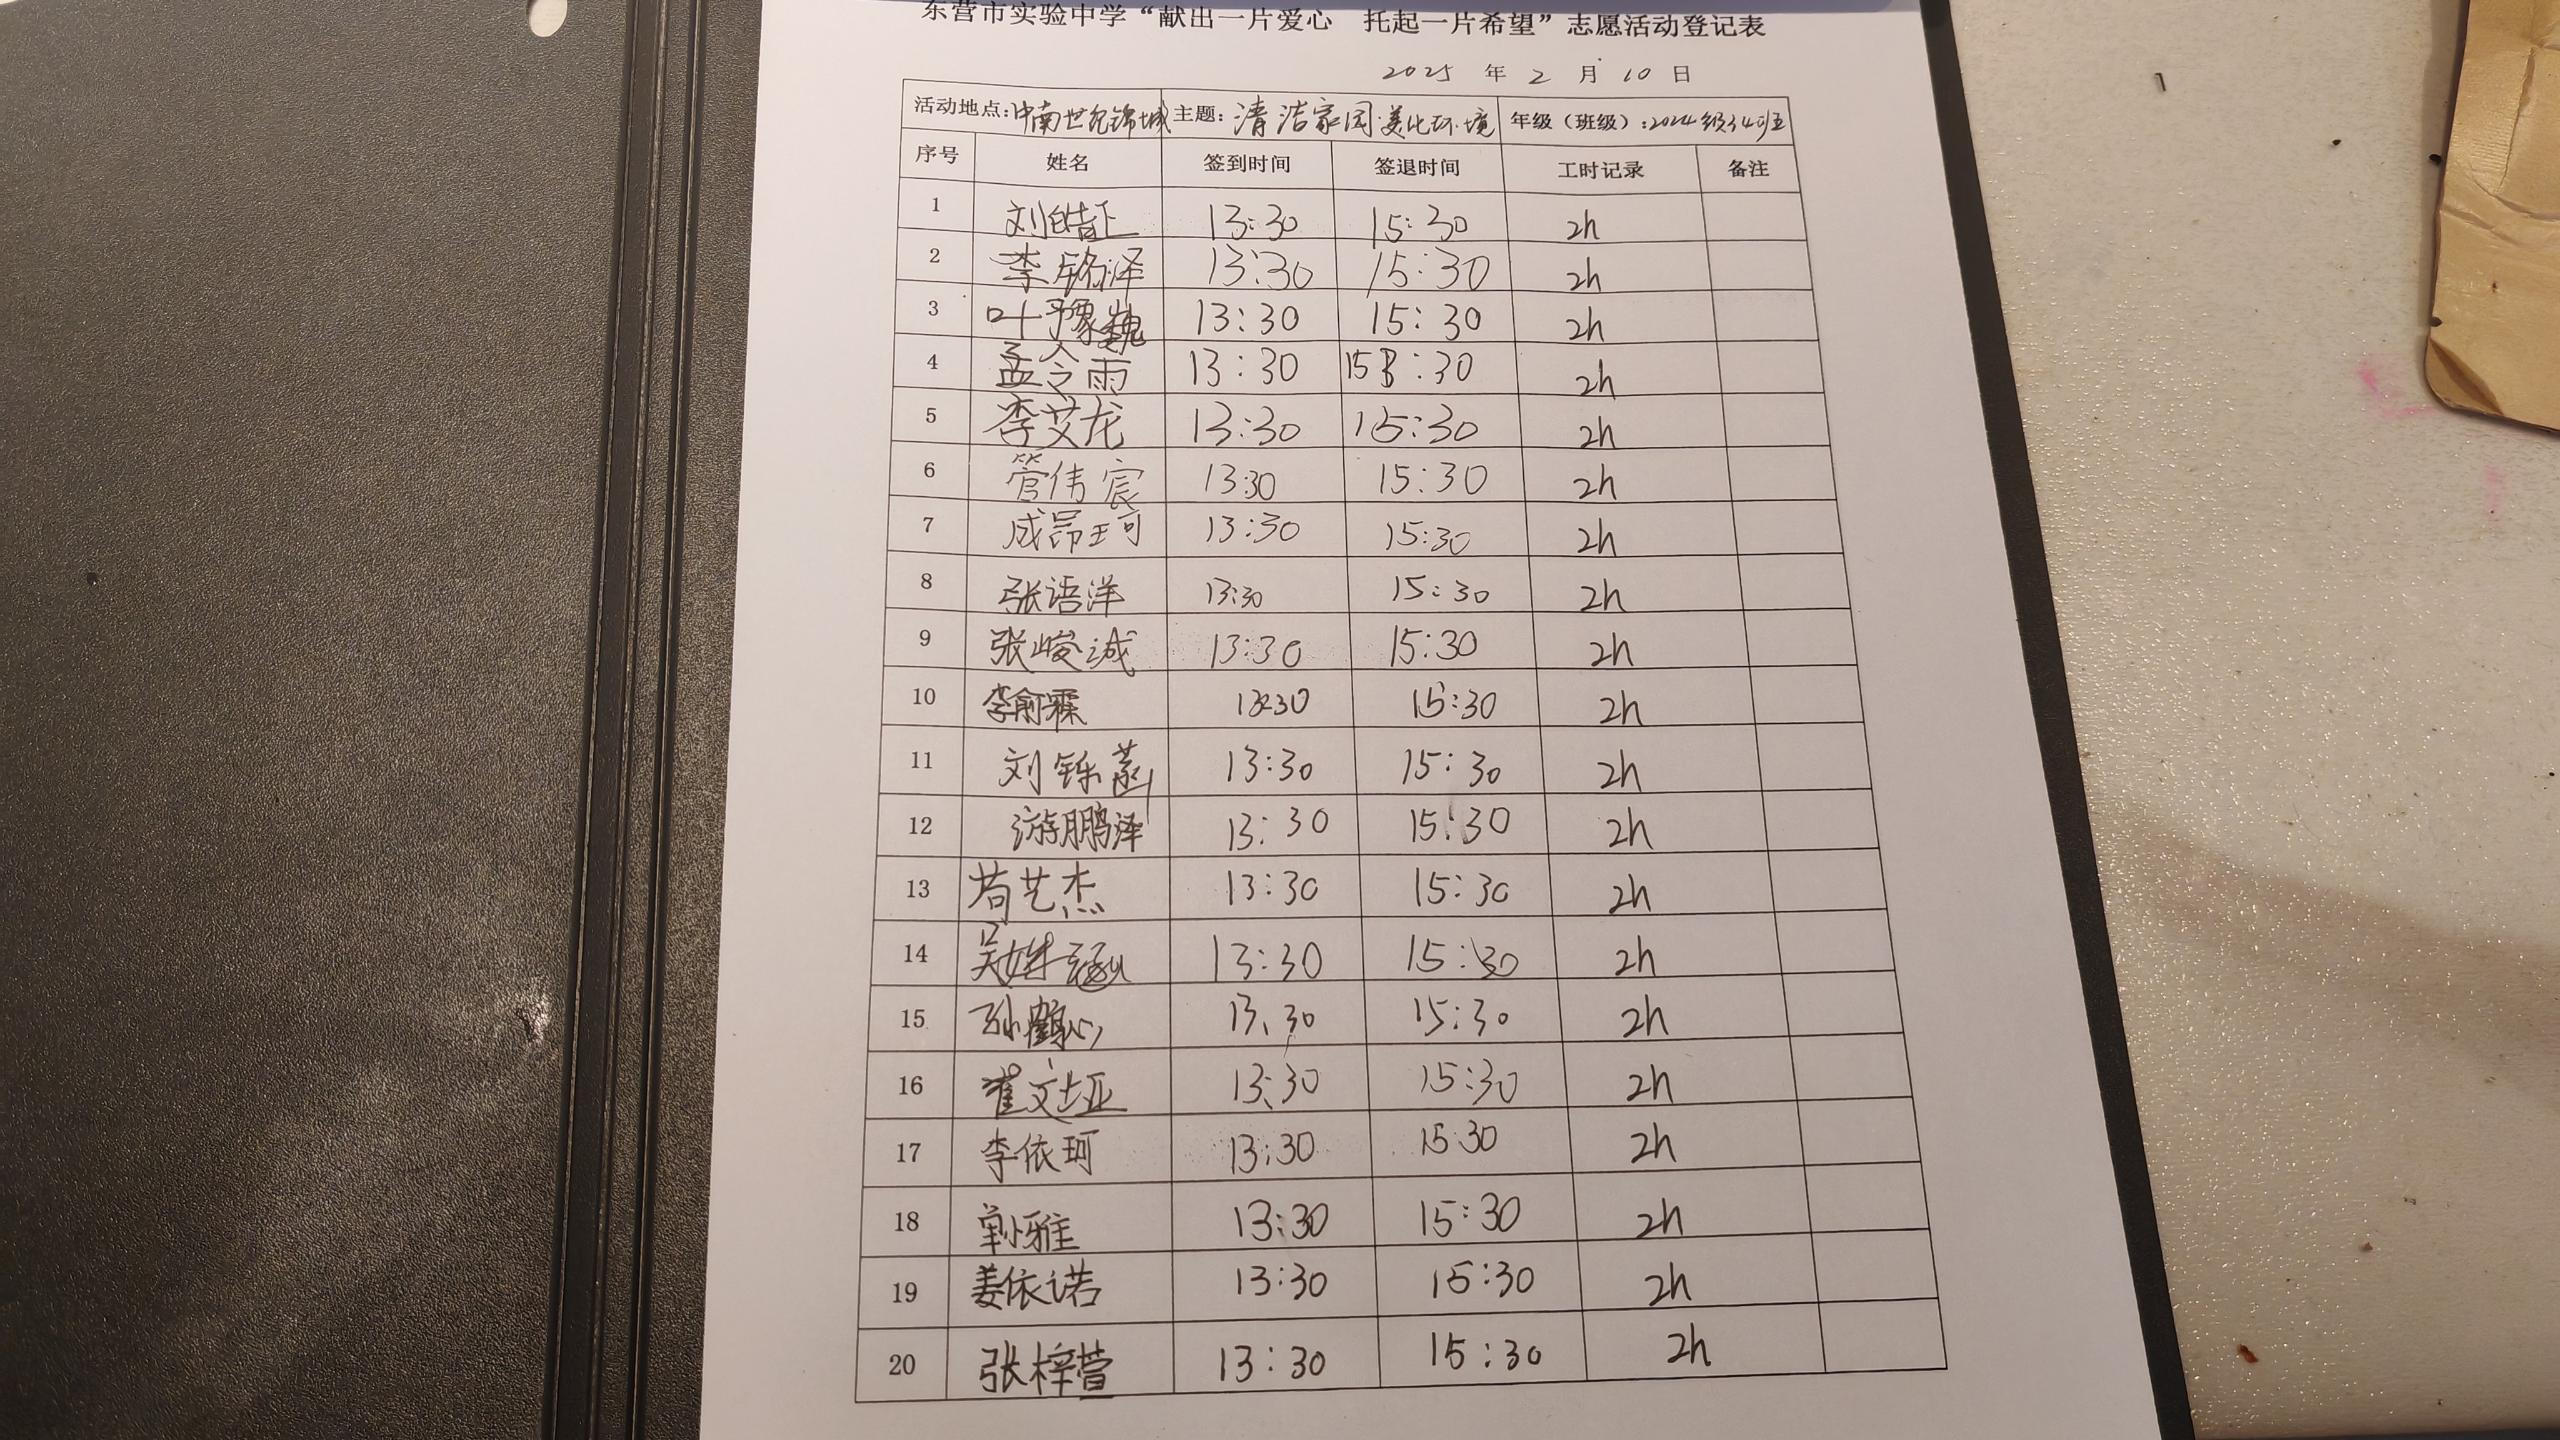 东营市实验中学“献出一片爱心 托起一片希望”志愿活动登记表
2025 年 2 月 10 日
活动地点:中南世纪锦城 主题:清洁家园·美化环境 年级(班级):2024级34班
序号 姓名 签到时间 签退时间 工时记录 备注
1 刘皓正 13:30 15:30 2h
2 李铭泽 13:30 15:30 2h
3 叶豫巍 13:30 15:30 2h
4 孟令雨 13:30 15:30 2h
5 李艾龙 13:30 15:30 2h
6 管伟宸 13:30 15:30 2h
7 成昂珂 13:30 15:30 2h
8 张语洋 13:30 15:30 2h
9 张峻诚 13:30 15:30 2h
10 李俞霖 13:30 15:30 2h
11 刘铄菡 13:30 15:30 2h
12 游鹏泽 13:30 15:30 2h
13 苟艺杰 13:30 15:30 2h
14 吴姝涵 13:30 15:30 2h
15 孙鹤心 13:30 15:30 2h
16 崔文 13:30 15:30 2h
17 李依珂 13:30 15:30 2h
18 13:30 15:30 2h
19 姜依诺 13:30 15:30 2h
20 张梓萱 13:30 15:30 2h